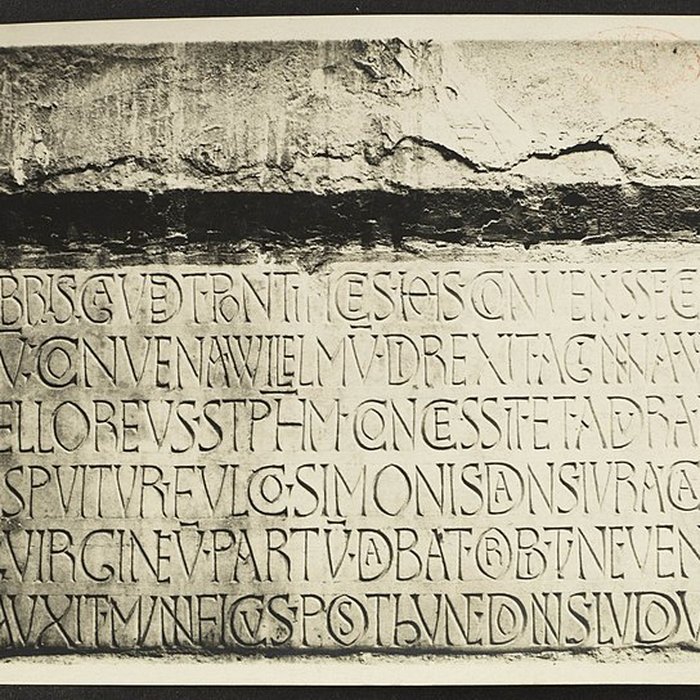 BRIS·GAVDET·PONTIFICES·HIS CONVENISSE
V·CONVENA·WILELMV̄·DIREXIT AGNNA
ELLOREVS·STPHM·CONCESSIT·ET ADVRA
SPVITVR·FVLCO·SIMONIS DANS IVRA
VIRGINEV̄·PARTV̄·DABAT ORBI·T·NE VEN
AVXIT·MVNIFICVS·POST hVNC DONIS·LVDOV